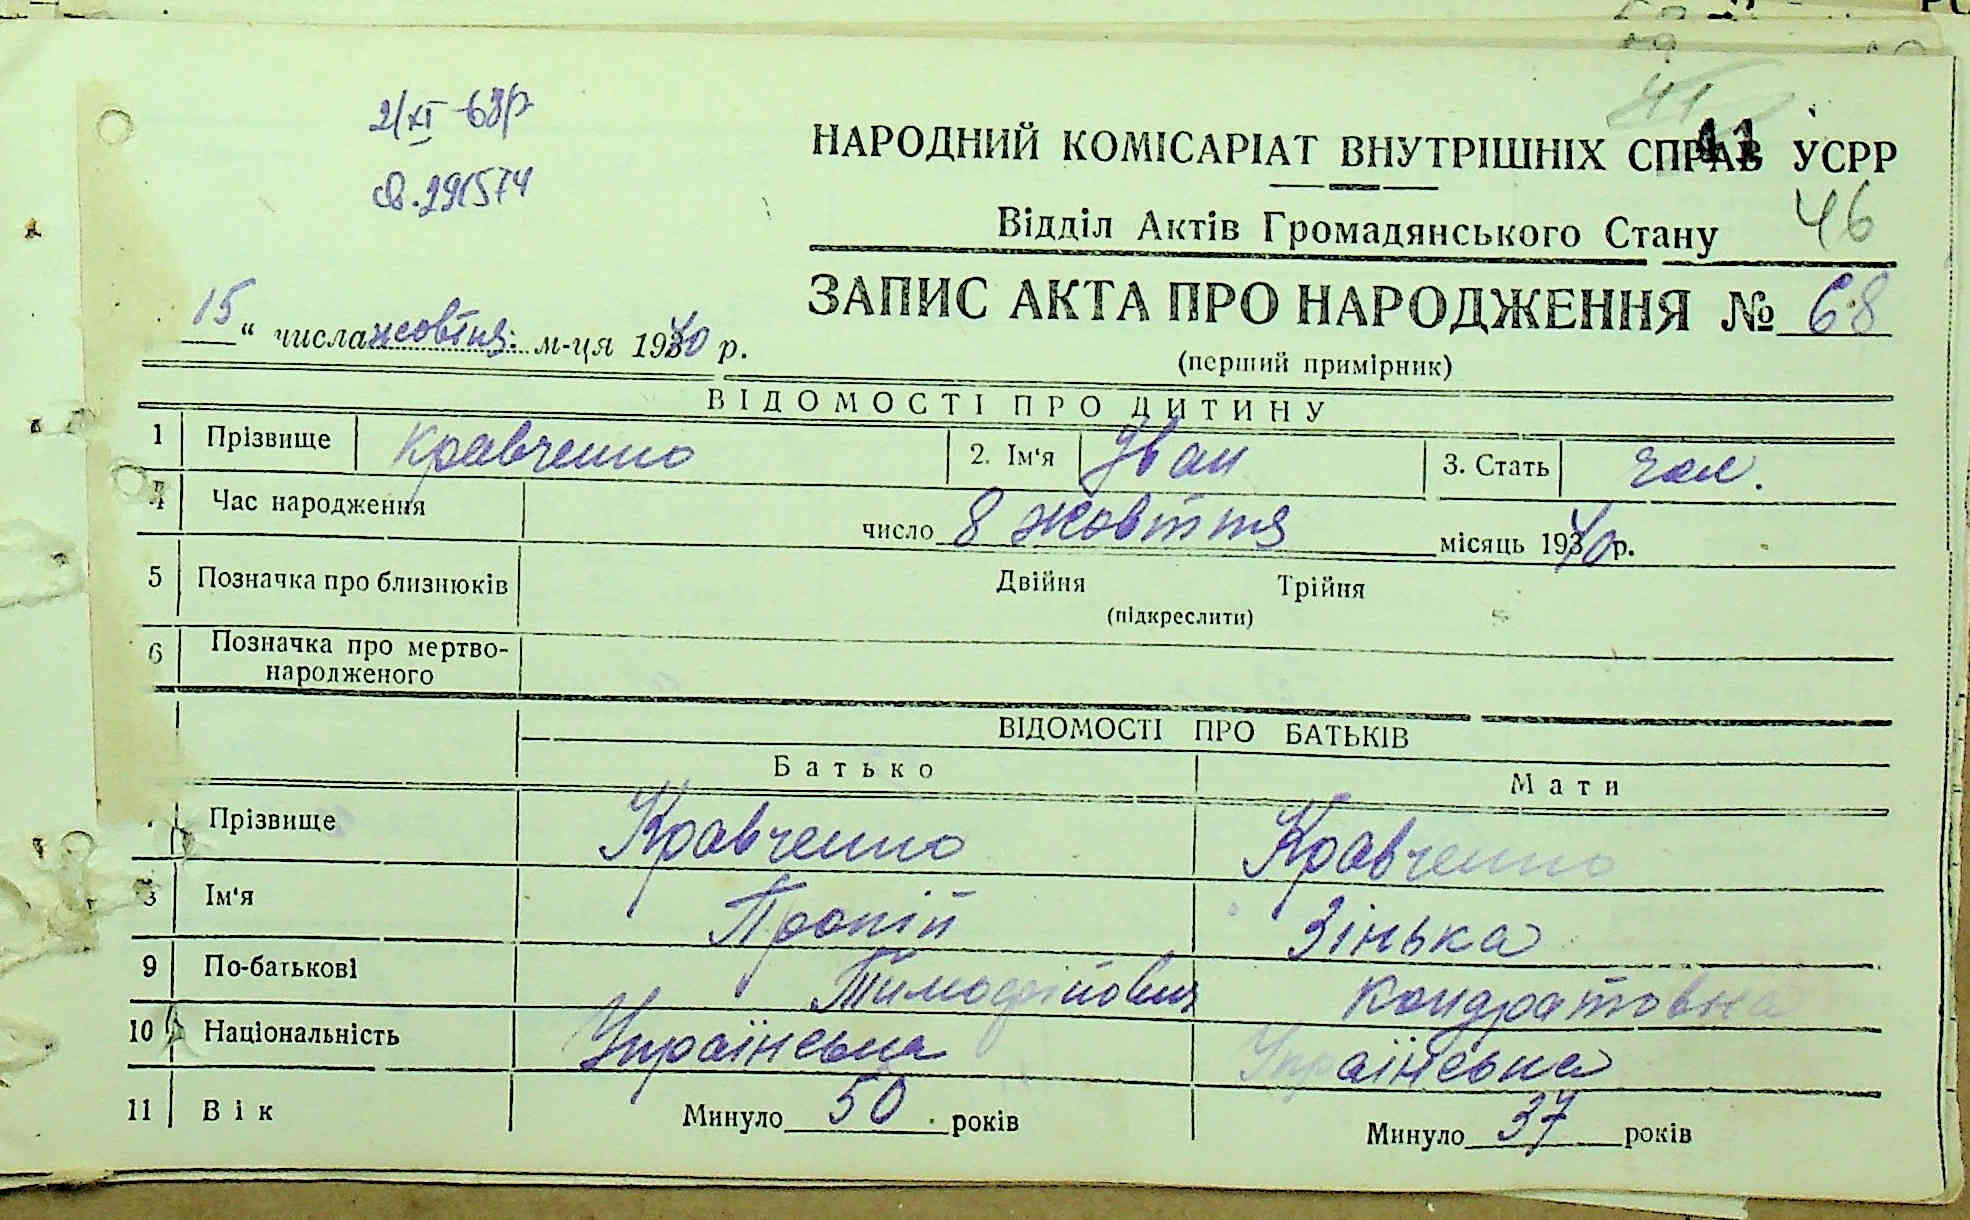 2/XI 63р
41
НАРОДНИЙ КОМІСАРІАТ ВНУТРІШНІХ СПРАВ УСРР
41
Відділ Актів Громадянського Стану
46
ЗАПИС АКТА ПРО НАРОДЖЕННЯ № 68
(перший примірник)
15 “ числа жовтня м-ця 1940 р.
ВІДОМОСТІ ПРО ДИТИНУ
1 Прізвище Кравченко 2. Ім‘я Іван 3. Стать чол.
4 Час народження число 8 жовтня місяць 1940 р.
5 Позначка про близнюків Двійня Трійня
(підкреслити)
6 Позначка про мертво-
народженого
ВІДОМОСТІ ПРО БАТЬКІВ
Батько Мати
Прізвище Кравченко Кравченко
8 Ім‘я Прокіп Зінька
9 По-батькові Тимофійович Кондратовна
10 Національність Українська Українська
11 Вік Минуло 50 років Минуло 37 років